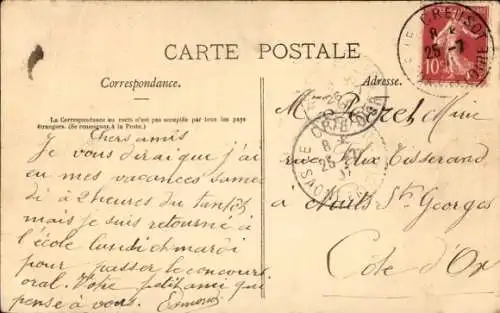 CARTE POSTALE
Correspondance.
La Correspondance au recto n'est pas acceptée par tous les pays
étrangers. (Se renseigner à la Poste.)
Chers amis
Je vous dirai que j'ai
eu mes vacances same
di à 2 heures du tantôt
mais je suis retourné à
l'école lundi mardi
pour passer le concours
oral. Votre petit ami qui
pense à vous. Edmond
Adresse.
Mr Péret Mine
rue aux Tisserand
à Nuits St Georges
Côte d'Or
LE CREUSOT
8
25 -7
10
8
25